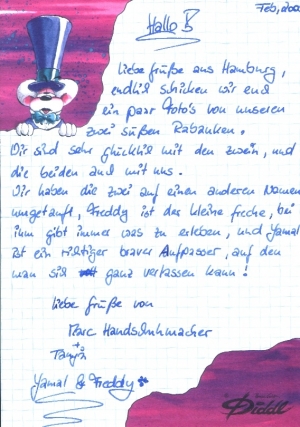 Feb, 200
Hallo B
liebe Grüße aus Hamburg,
endlich schicken wir euch
ein paar Foto's von unseren
zwei süßen Rabauken.
Wir sind sehr glücklich mit den zwein, und
die beiden auch mit uns.
Wir haben die zwei auf einen anderen Namen
umgetauft, Freddy ist der kleine freche, bei
ihm gibt immer was zu erleben, und Yamal
ist ein richtiger braver Aufpasser, auf den
man sich ganz verlassen kann!
liebe Grüße von
Marc Handschuhmacher
+
Tanja
Yamal & Freddy
Diddl